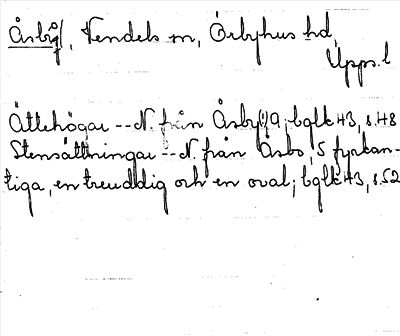 Åsby, Vendels sn, Örbyhus hd,
Upps. l
Ättehögar -- N. från Åsby, 9; bglk 43, s. 48
Stensättningar -- N. från Åsbo, 5 fyrkan-
tiga, en treuddig och en oval; bglk 43, s. 52